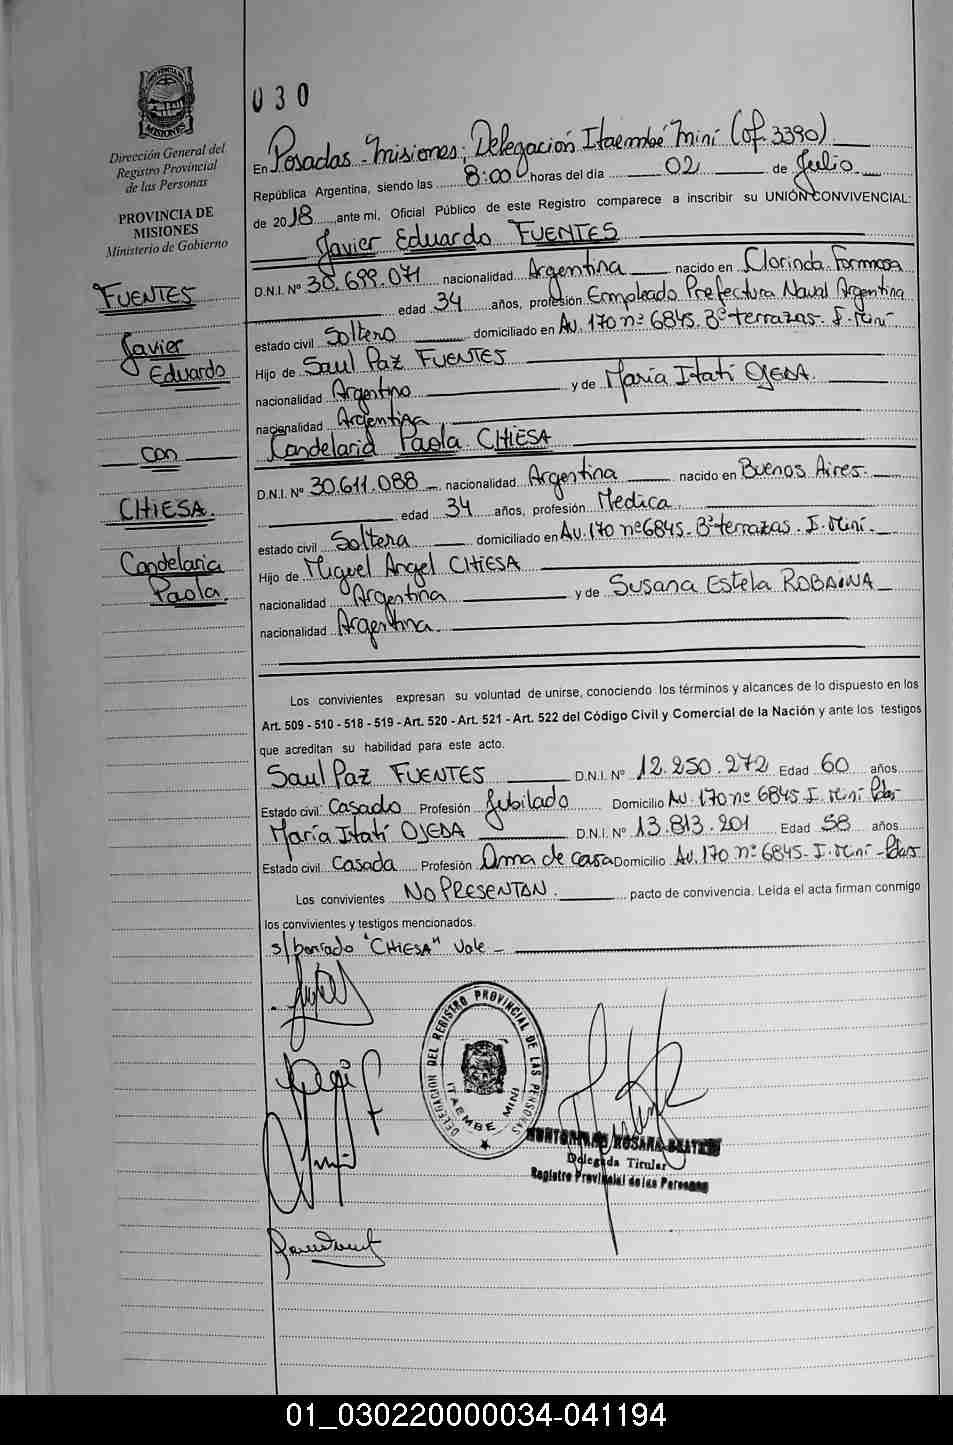 PROVINCIA DE
MISIONES
Dirección General del
Registro Provincial
de las Personas
PROVINCIA DE
MISIONES
Ministerio de Gobierno
FUENTES
Javier
Eduardo
con
CHIESA.
Candelaria
Paola.
030
En Posadas - Misiones; Delegación Itaembé Miní (of. 3390)
República Argentina, siendo las 8:00 horas del día 02 de Julio
de 2018, ante mi, Oficial Público de este Registro comparece a inscribir su UNIÓN CONVIVENCIAL:
Javier Eduardo FUENTES
D.N.I. Nº 30.699.071 nacionalidad Argentina nacido en Clorinda. Formosa
edad 34 años, profesión Empleado Prefectura Naval Argentina
estado civil Soltero domiciliado en Av. 170 nº 6845. Bº terrazas. I. Miní
Hijo de Saul Paz FUENTES
nacionalidad Argentino y de María Itatí OJEDA.
nacionalidad Argentina
Candelaria Paola CHIESA
D.N.I. Nº 30.611.088 nacionalidad Argentina nacido en Buenos Aires.
edad 34 años, profesión Medica
estado civil Soltera domiciliado en Av. 170 nº 6845. Bº terrazas. I. Miní.
Hijo de Miguel Angel CHIESA
nacionalidad Argentina y de Susana Estela ROBAINA
nacionalidad Argentina.
Los convivientes expresan su voluntad de unirse, conociendo los términos y alcances de lo dispuesto en los
Art. 509 - 510 - 518 - 519 - Art. 520 - Art. 521 - Art. 522 del Código Civil y Comercial de la Nación y ante los testigos
que acreditan su habilidad para este acto.
Saul Paz FUENTES D.N.I. Nº 12.250.272 Edad 60 años
Estado civil Casado Profesión Jubilado Domicilio Av. 170 nº 6845 I. Miní Pdas
María Itatí OJEDA D.N.I. Nº 13.813.201 Edad 58 años
Estado civil Casada Profesión Ama de casa Domicilio Av. 170 nº 6845 - I. Miní - Pdas
Los convivientes NO PRESENTAN. pacto de convivencia. Leída el acta firman conmigo
los convivientes y testigos mencionados.
s/borrado "CHIESA" Vale -
DELEGACION DEL REGISTRO PROVINCIAL DE LAS PERSONAS
ITAEMBE MINI
ROSANA BEATRIZ
Delegada Titular
Registro Provincial de las Personas
01_030220000034-041194